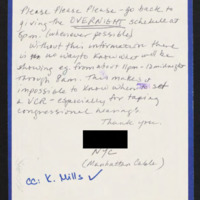 Please Please Please - go back to
giving the OVERNIGHT schedule at
6pm. (whenever possible)
Without this information there
is no way to know what will be
showing from 8pm - midnight
through 8am. This makes it
impossible to know when to set
a VCR - especially for taping
congressional hearings.
Thank you.
NYC
(Manhattan Cable)
cc: K. Mills ✓